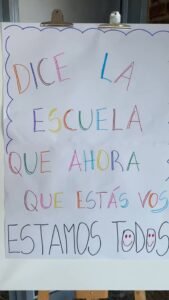 DICE LA
ESCUELA
QUE AHORA
QUE ESTÁS VOS
ESTAMOS TODOS